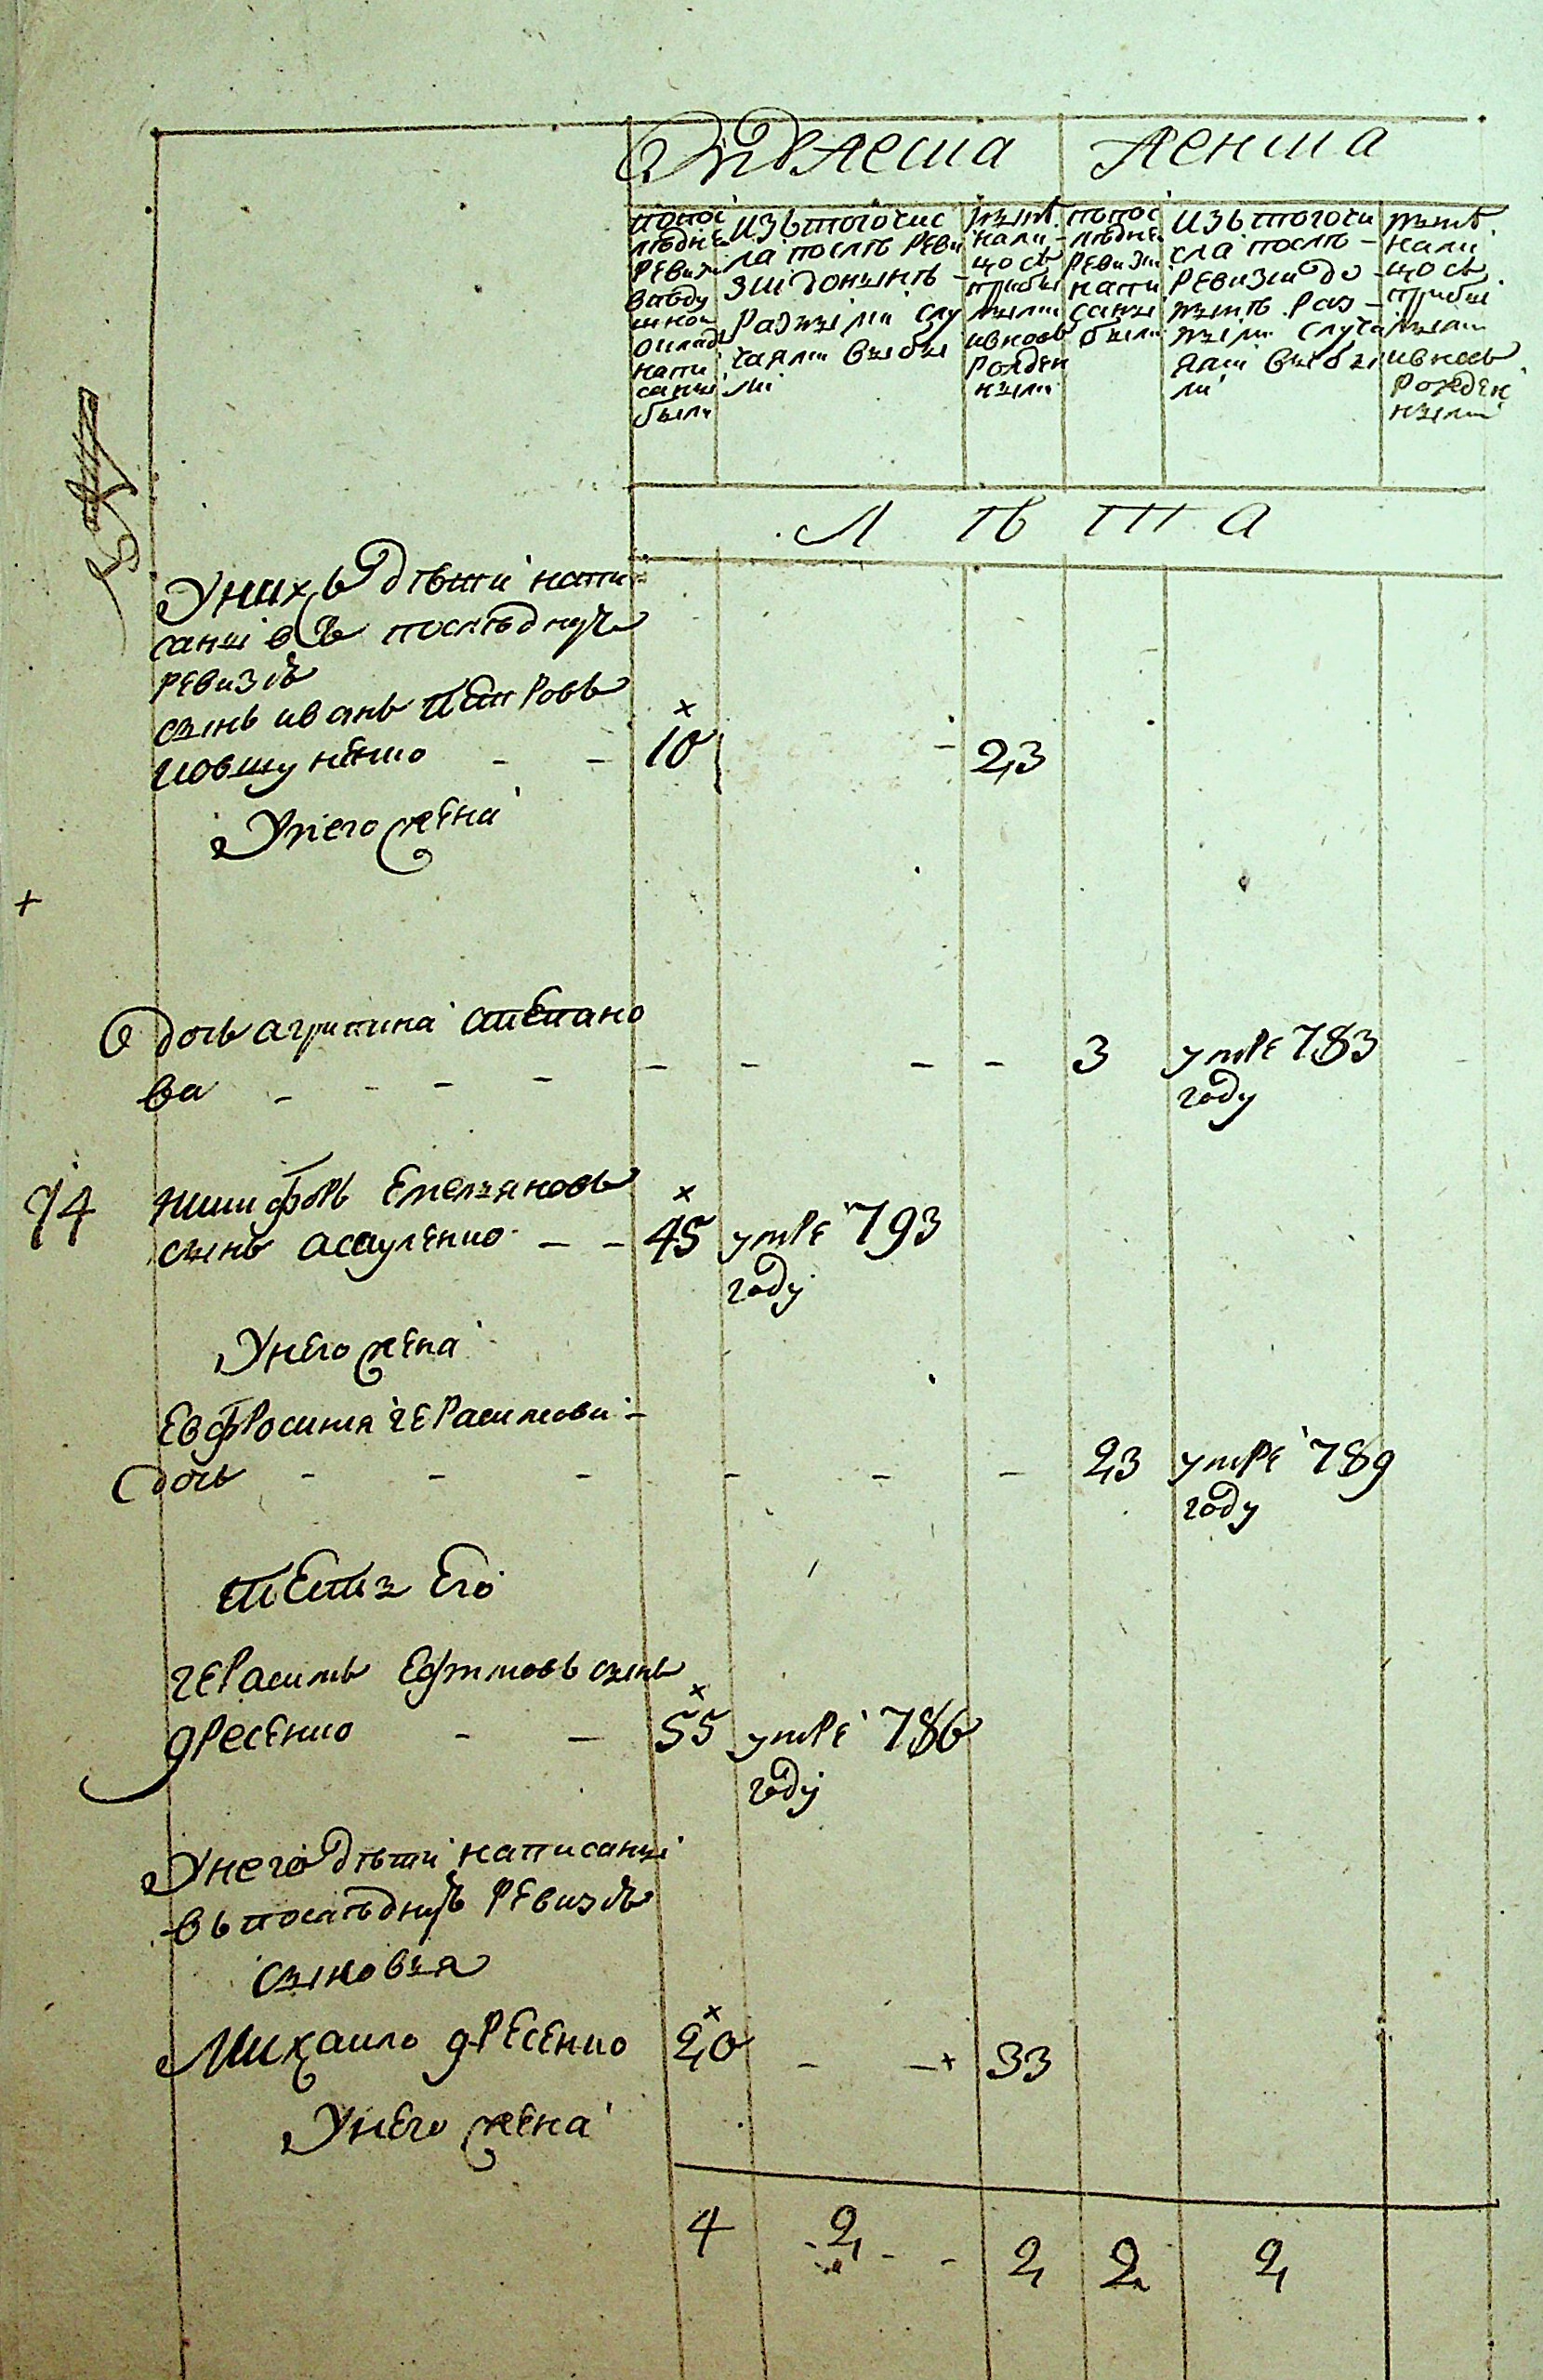 Мужеска
Женска
по пос
ледне
ревизи
в подуш
ном
окладе
напи
санні
были
изъ того чис
ла после реви
зіи до ныне
разными слу
чаями выбы
ли
ныне
на ли
цо съ
прибы
лыми
и вновь
рожден
ными
по пос
ледне
ревизіи
напи
саны
были
изъ того чи
сла после
ревизіи до
ныне раз
ными случа
ями выбы
ли
ныне
на ли
цо съ
прибы
лыми
и вновь
рожден
ными
Л Ѣ Т А
У нихъ дѣти напи
санні в последнуй
ревизіѣ
сынъ иванъ петровъ
ковшуненко - - 10 - 23
У него жена
+
дочь агрипина степано
ва - - - - - - - - 3 умре 783
году
74 никифоръ Емельяновъ
сынъ асауленко - - 45 умре 793
году
У него жена
Евфросиния герасимова
дочь - - - - - - 23 умре 789
году
тесть Его
герасимъ сынъ
- - 55 умре 786
году
У него дѣти написанні
въ последнуй ревизіѣ
сыновья
Михаило 20 - - 33
У него жена
4 2 - - 2 2 2